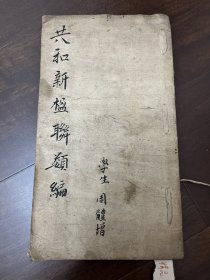 共和新楹聯類編
學生 周體增